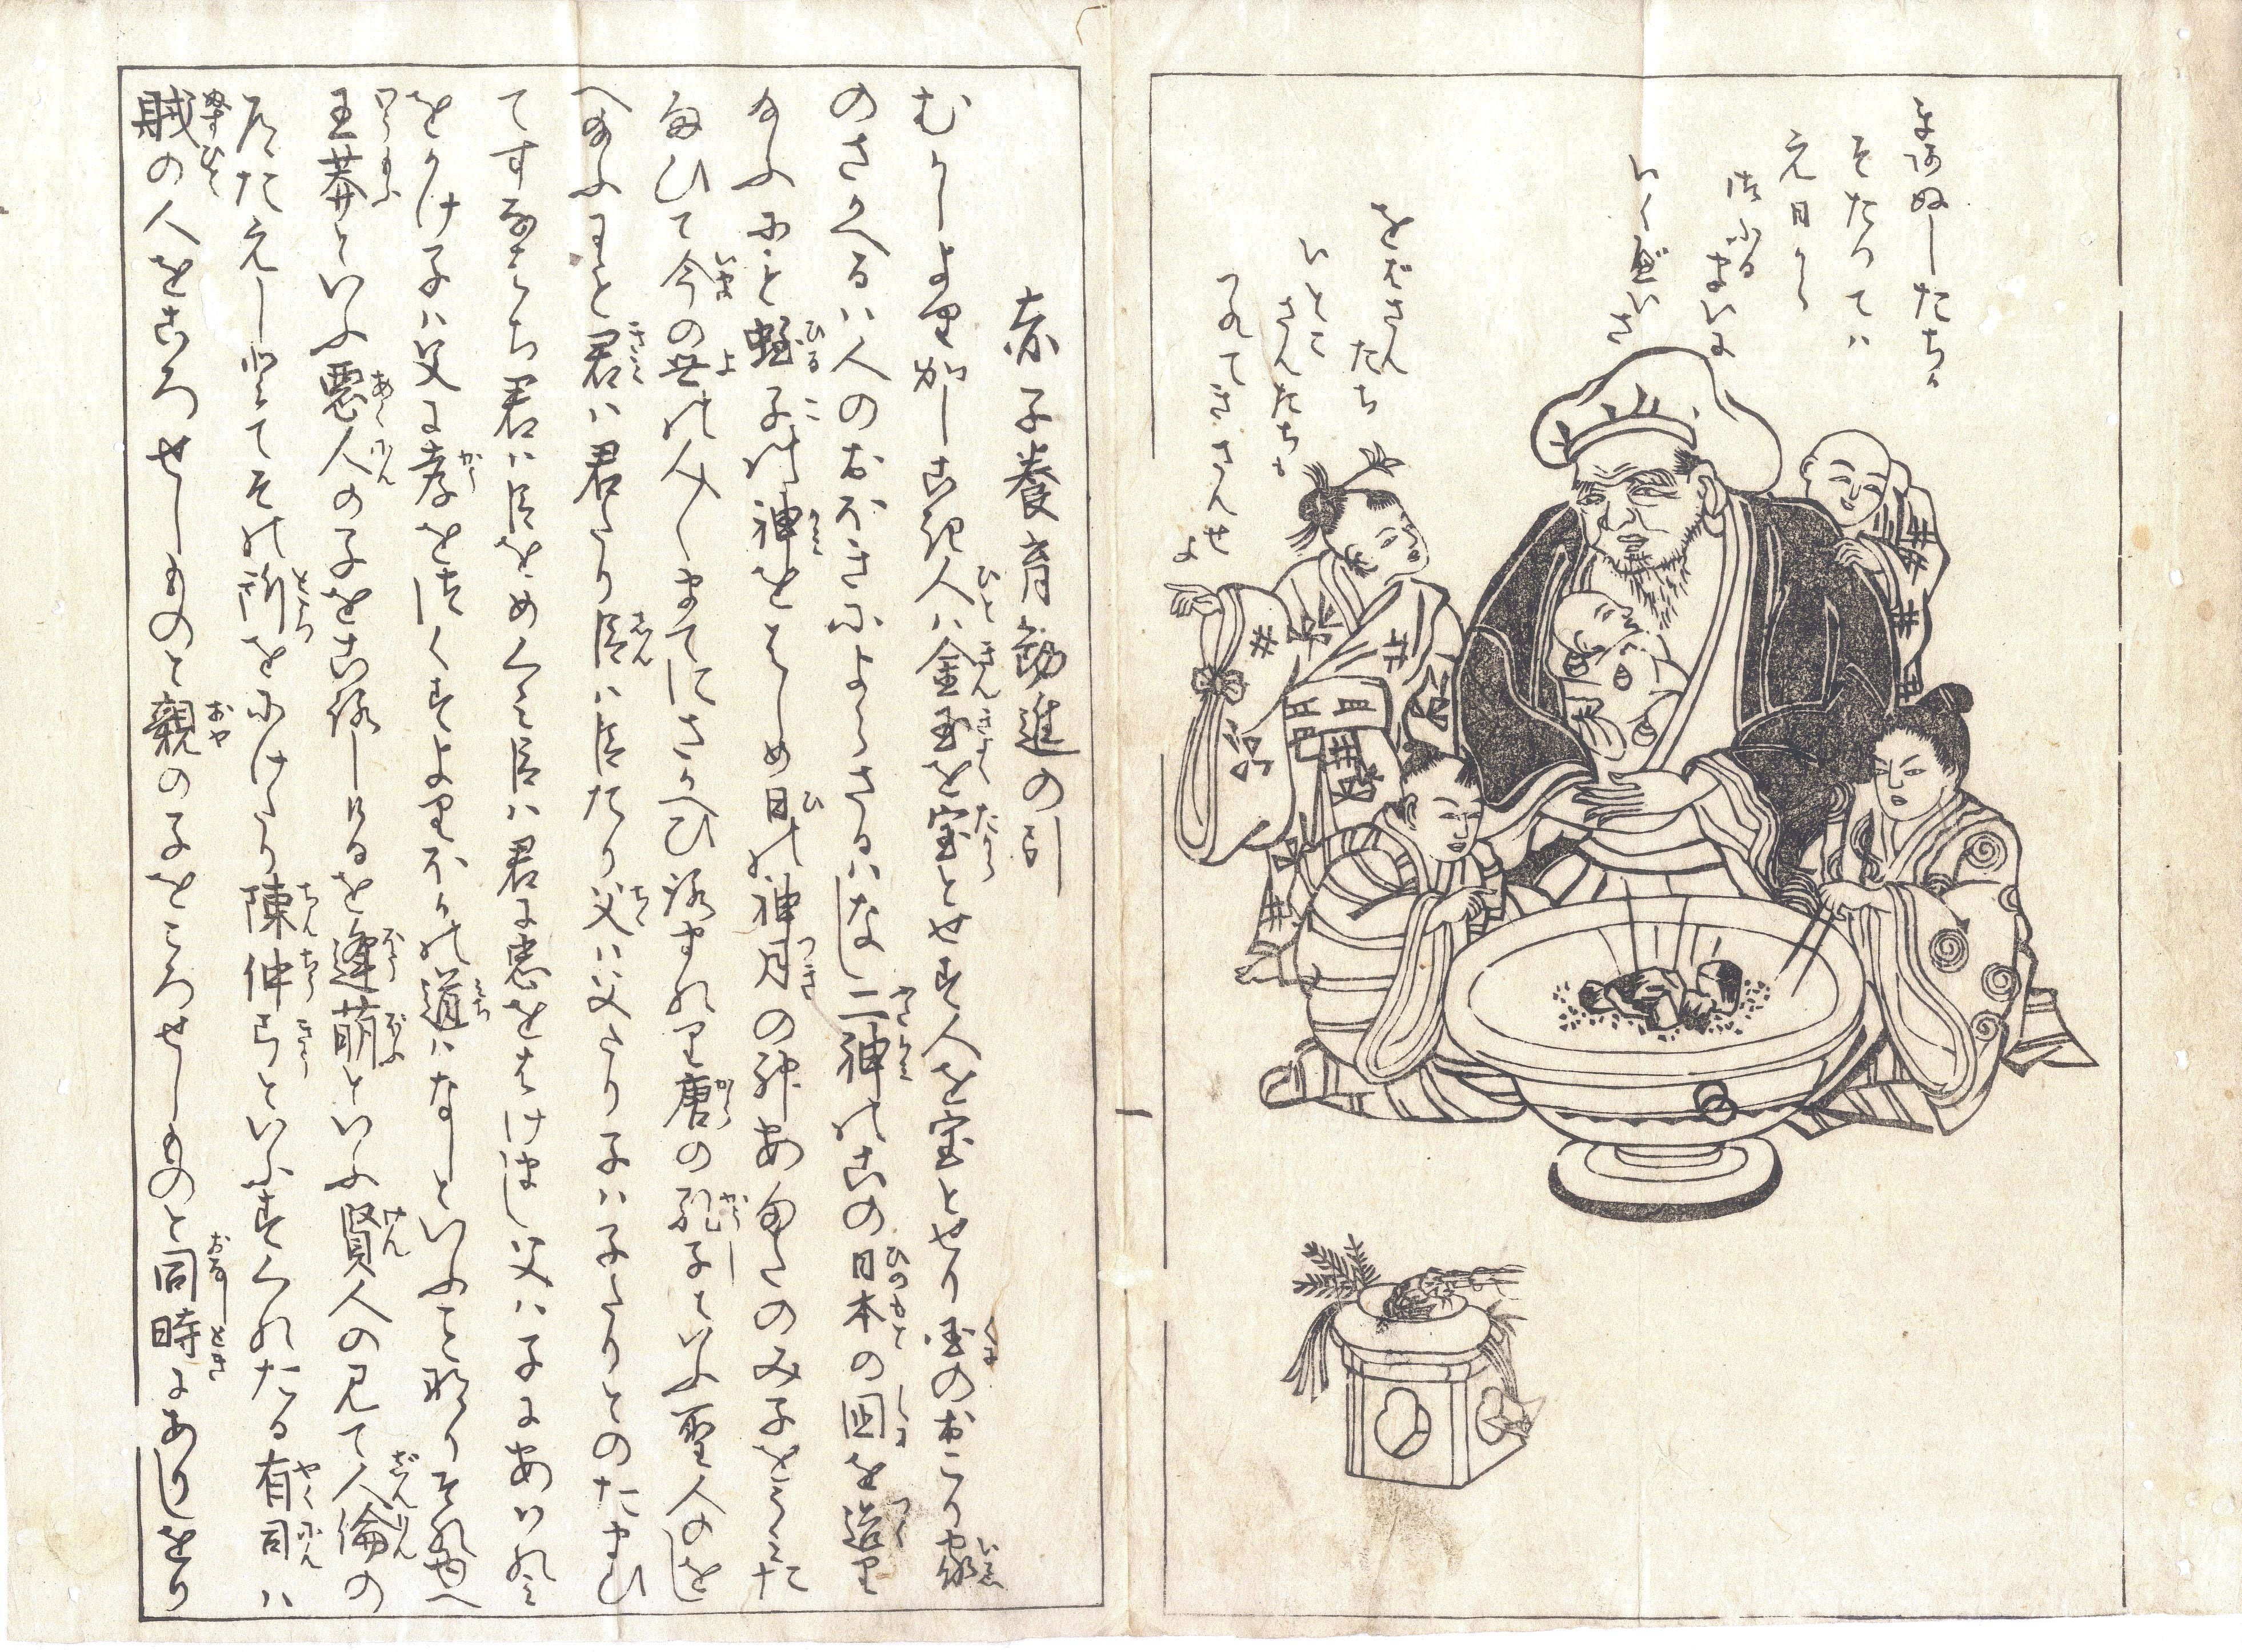 そたつてハ
元日から
ふるまいに
をばさん
たち
いとこ
さんたちも
つれてきさんせ
よ
赤子養育勧進の引
むかしより かしこき人ハ金玉を宝とせす人を宝とせり国のおこり家
のさかへるハ人のおほきによらさるハなし二神のこの日本の国を造り
給ふにも蛭子の神をはしめ日の神月の神あまたのみ子をうミた
まひて今の世の人くさまてにさかへひろまれり唐の孔子といふ聖人のを
へ給ふこと君ハ君たり臣ハ臣たり父ハ父たり子ハ子たりとのたまひ
てすなはち君ハ臣をめくミ臣ハ君に忠をはけまし父ハ子にあハれミ
をかけ子ハ父に孝をつくすよりほかの道ハなしといふことなりそれゆへ
王莽といふ悪人の子をころしけるを逢萌といふ賢人の見て人倫の
たえしとてその所をにけたり陳仲弓といふすくれたる有司ハ
賊の人をころせしものと親の子をころせしものと同時にありしをり
一